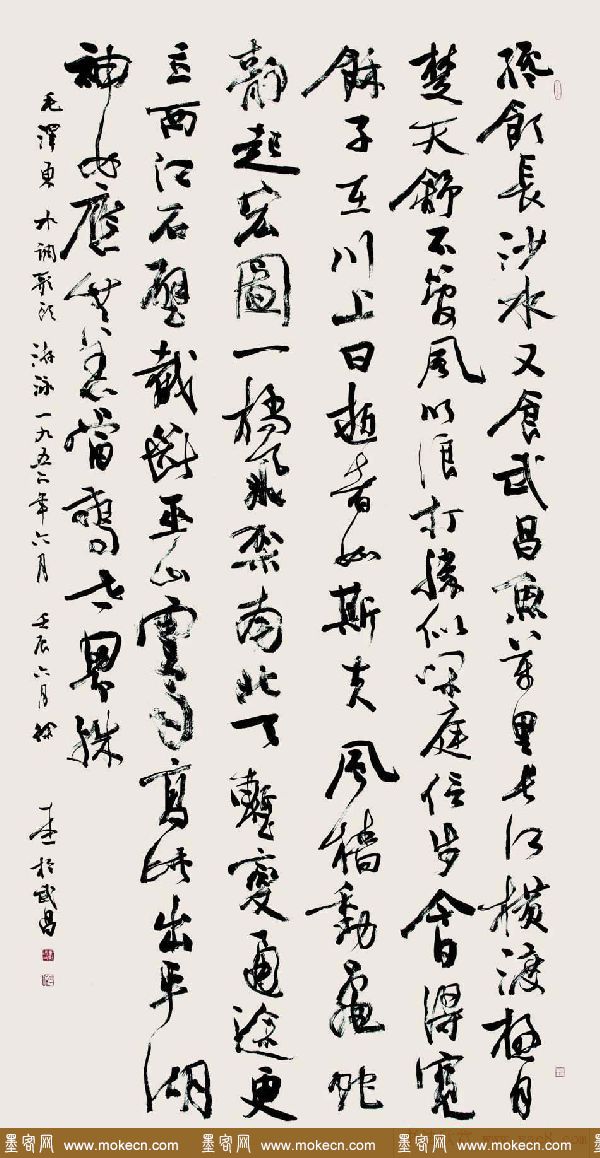 纔飲長沙水又食武昌魚萬里長江橫渡極目
楚天舒不管風吹浪打勝似閒庭信步今日得寬
餘子在川上曰逝者如斯夫風檣動龜蛇
靜起宏圖一橋飛架南北天塹變通途更
立西江石壁截斷巫山雲雨高峽出平湖
神女應無恙當驚世界殊
毛澤東水調歌頭游泳一九五六年六月 壬辰六月徐 於武昌
墨客网 www.mokecn.com 墨客网 www.mokecn.com 墨客网 www.mokecn.com